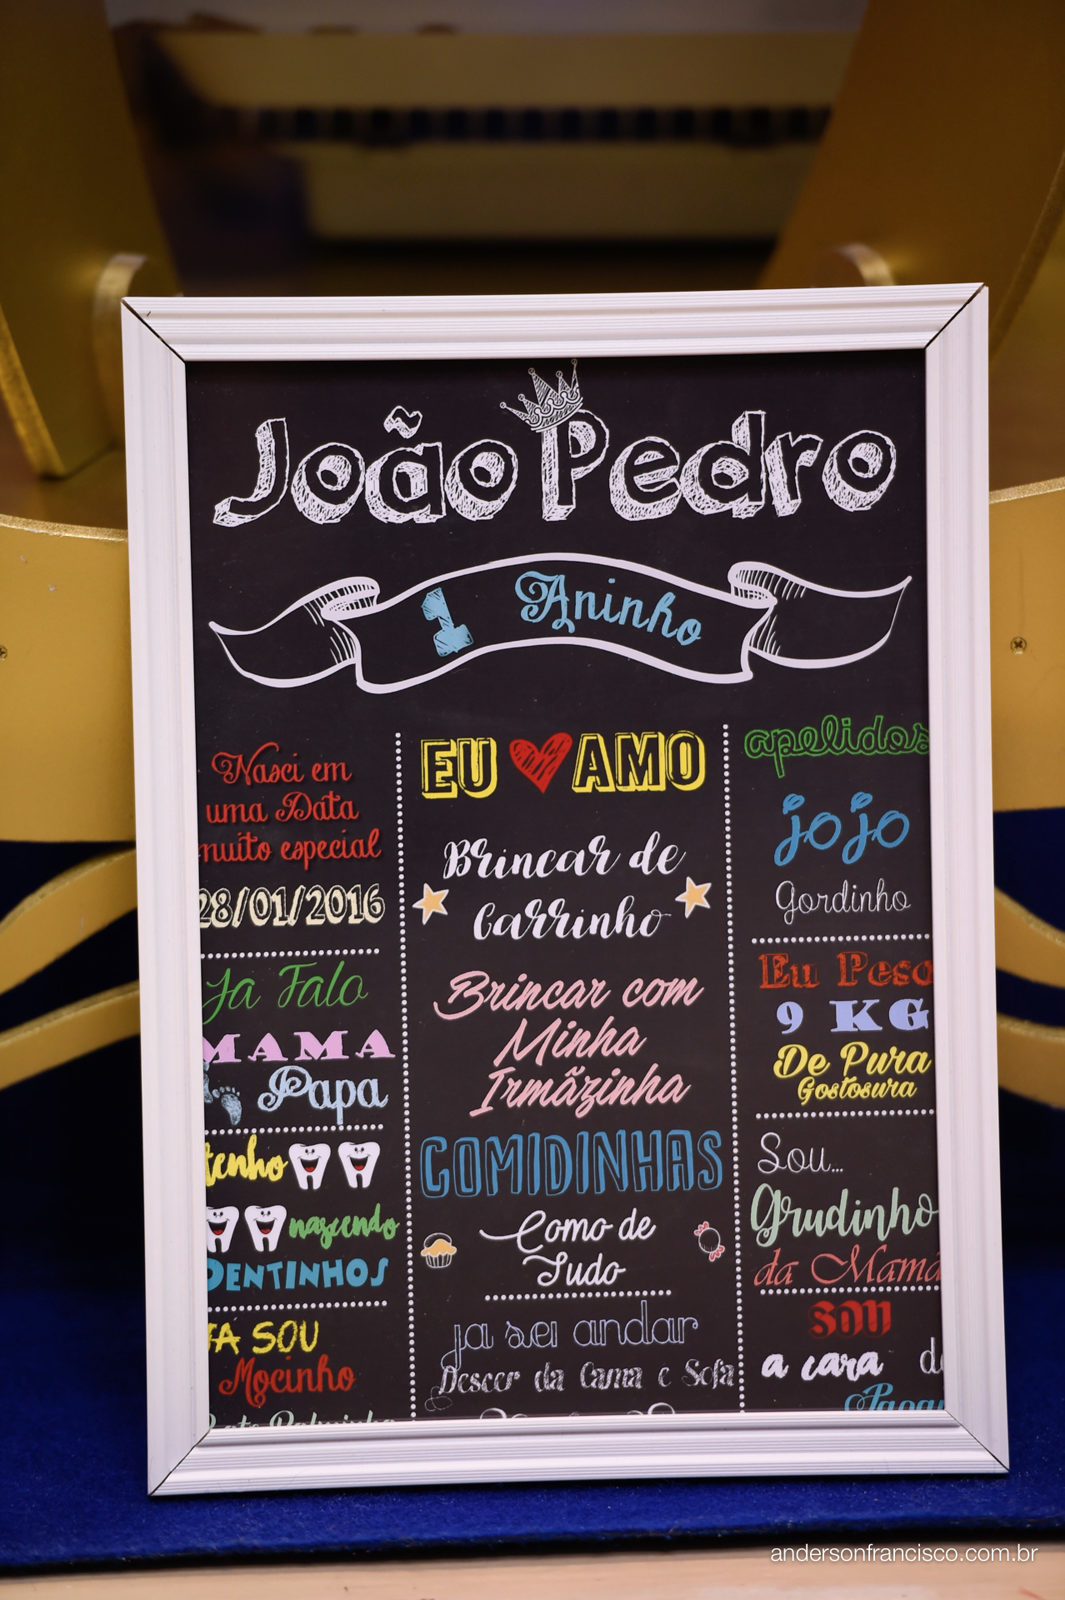 João Pedro
1 Aninho
Nasci em
uma Data
muito especial
28/01/2016
Ja Falo
MAMA
Papa
tenho
nascendo
DENTINHOS
JA SOU
Mocinho
EU AMO
Brincar de
Carrinho
Brincar com
Minha
Irmãzinha
COMIDINHAS
Como de
Tudo
ja sei andar
Descer da Cama e Sofa
apelidos
jojo
Gordinho
Eu Peso
9 KG
De Pura
Gostosura
Sou...
Grudinho
da Mamã
SOU
a cara do
Papai
andersonfrancisco.com.br